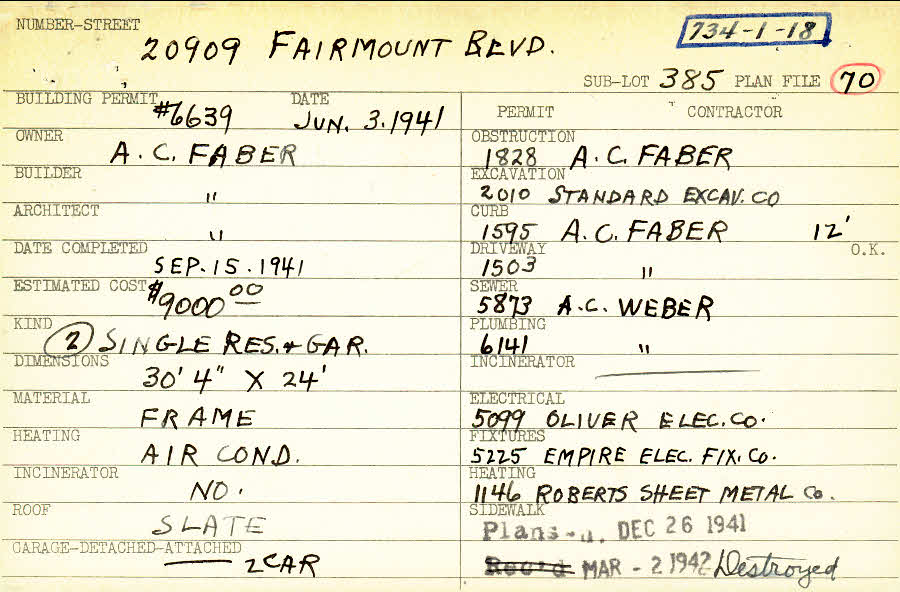 NUMBER-STREET
20909 FAIRMOUNT BLVD.
734-1-18
SUB-LOT 385 PLAN FILE 70
BUILDING PERMIT #6639 DATE JUN. 3. 1941
OWNER
A. C. FABER
BUILDER
"
ARCHITECT
"
DATE COMPLETED
SEP. 15. 1941
ESTIMATED COST $9000 00
KIND
2 SINGLE RES. & GAR.
DIMENSIONS
30' 4" X 24'
MATERIAL
FRAME
HEATING
AIR COND.
INCINERATOR
NO.
ROOF
SLATE
GARAGE-DETACHED-ATTACHED
2 CAR
PERMIT CONTRACTOR
OBSTRUCTION
1828 A. C. FABER
EXCAVATION
2010 STANDARD EXCAV. CO
CURB
1595 A. C. FABER 12'
DRIVEWAY O.K.
1503 "
SEWER
5873 A. C. WEBER
PLUMBING
6141 "
INCINERATOR
ELECTRICAL
5099 OLIVER ELEC. CO.
FIXTURES
5225 EMPIRE ELEC. FIX. CO.
HEATING
1146 ROBERTS SHEET METAL CO.
SIDEWALK
Plans DEC 26 1941
Rec'd MAR - 2 1942 Destroyed